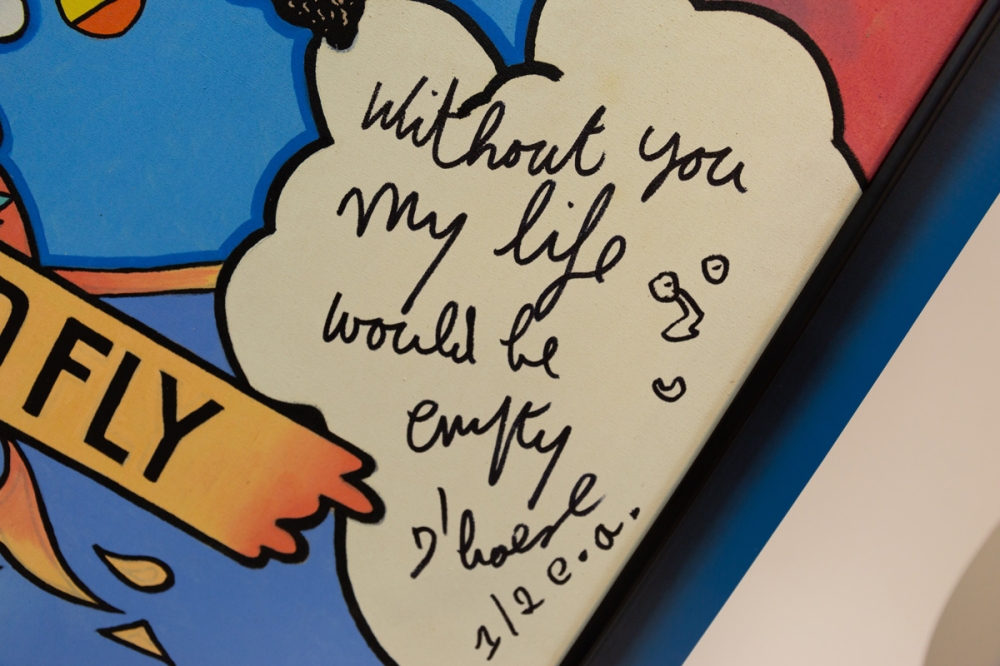 Without you
My life
would be
empty
D'haese
1/2 e.a.
FLY